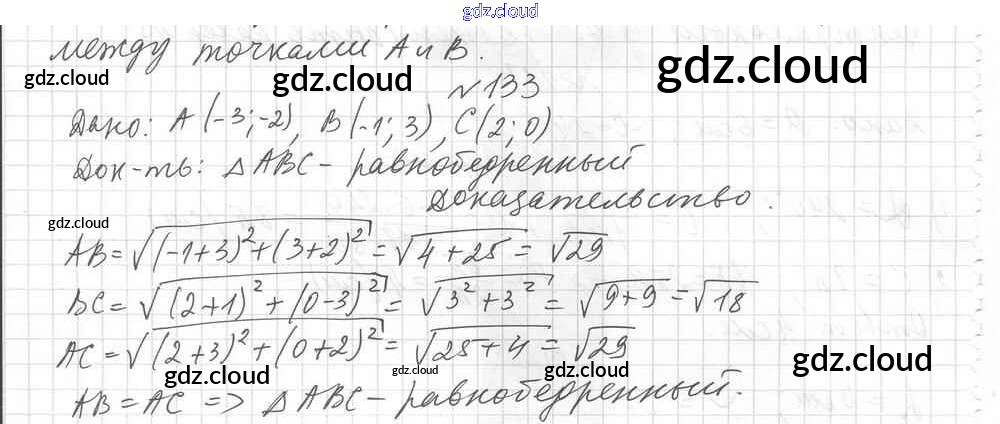 gdz.cloud
между точками A и B.
gdz.cloud gdz.cloud gdz.cloud
№133
Дано: A(-3;-2), B(-1; 3), C(2; 0)
Док-ть: △ABC - равнобедренный
Доказательство.
gdz.cloud gdz.cloud
AB = √((-1+3)²+(3+2)²) = √(4+25) = √29
BC = √((2+1)²+(0-3)²) = √(3²+3²) = √(9+9) = √18
AC = √((2+3)²+(0+2)²) = √(25+4) = √29
gdz.cloud gdz.cloud gdz.cloud gdz.cloud
AB = AC => △ABC - равнобедренный.